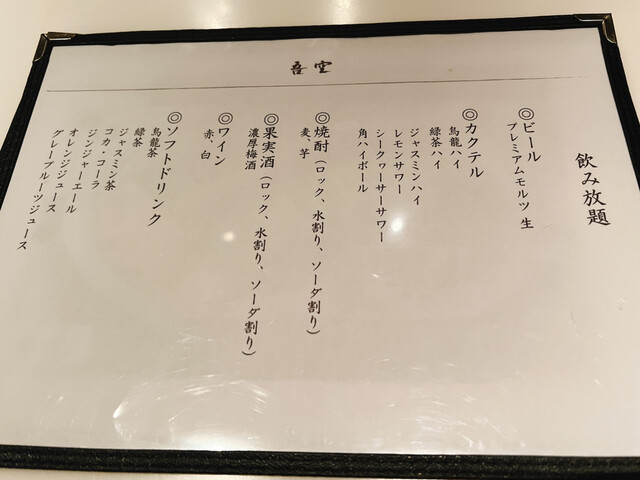 吾空
飲み放題
◎ビール
プレミアムモルツ 生
◎カクテル
烏龍ハイ
緑茶ハイ
ジャスミンハイ
レモンサワー
シークヮーサーサワー
角ハイボール
◎焼酎（ロック、水割り、ソーダ割り）
麦、芋
◎果実酒（ロック、水割り、ソーダ割り）
濃厚梅酒
◎ワイン
赤、白
◎ソフトドリンク
烏龍茶
緑茶
ジャスミン茶
コカ・コーラ
ジンジャーエール
オレンジジュース
グレープフルーツジュース